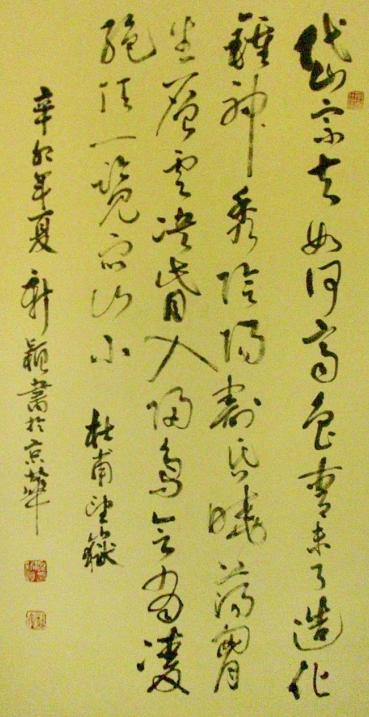 岱宗夫如何齊魯青未了造化
鍾神秀陰陽割昏曉蕩胸
生層雲決眥入歸鳥會當凌
絕頂一覽眾山小 杜甫望嶽
辛卯年夏 新穎書於京華